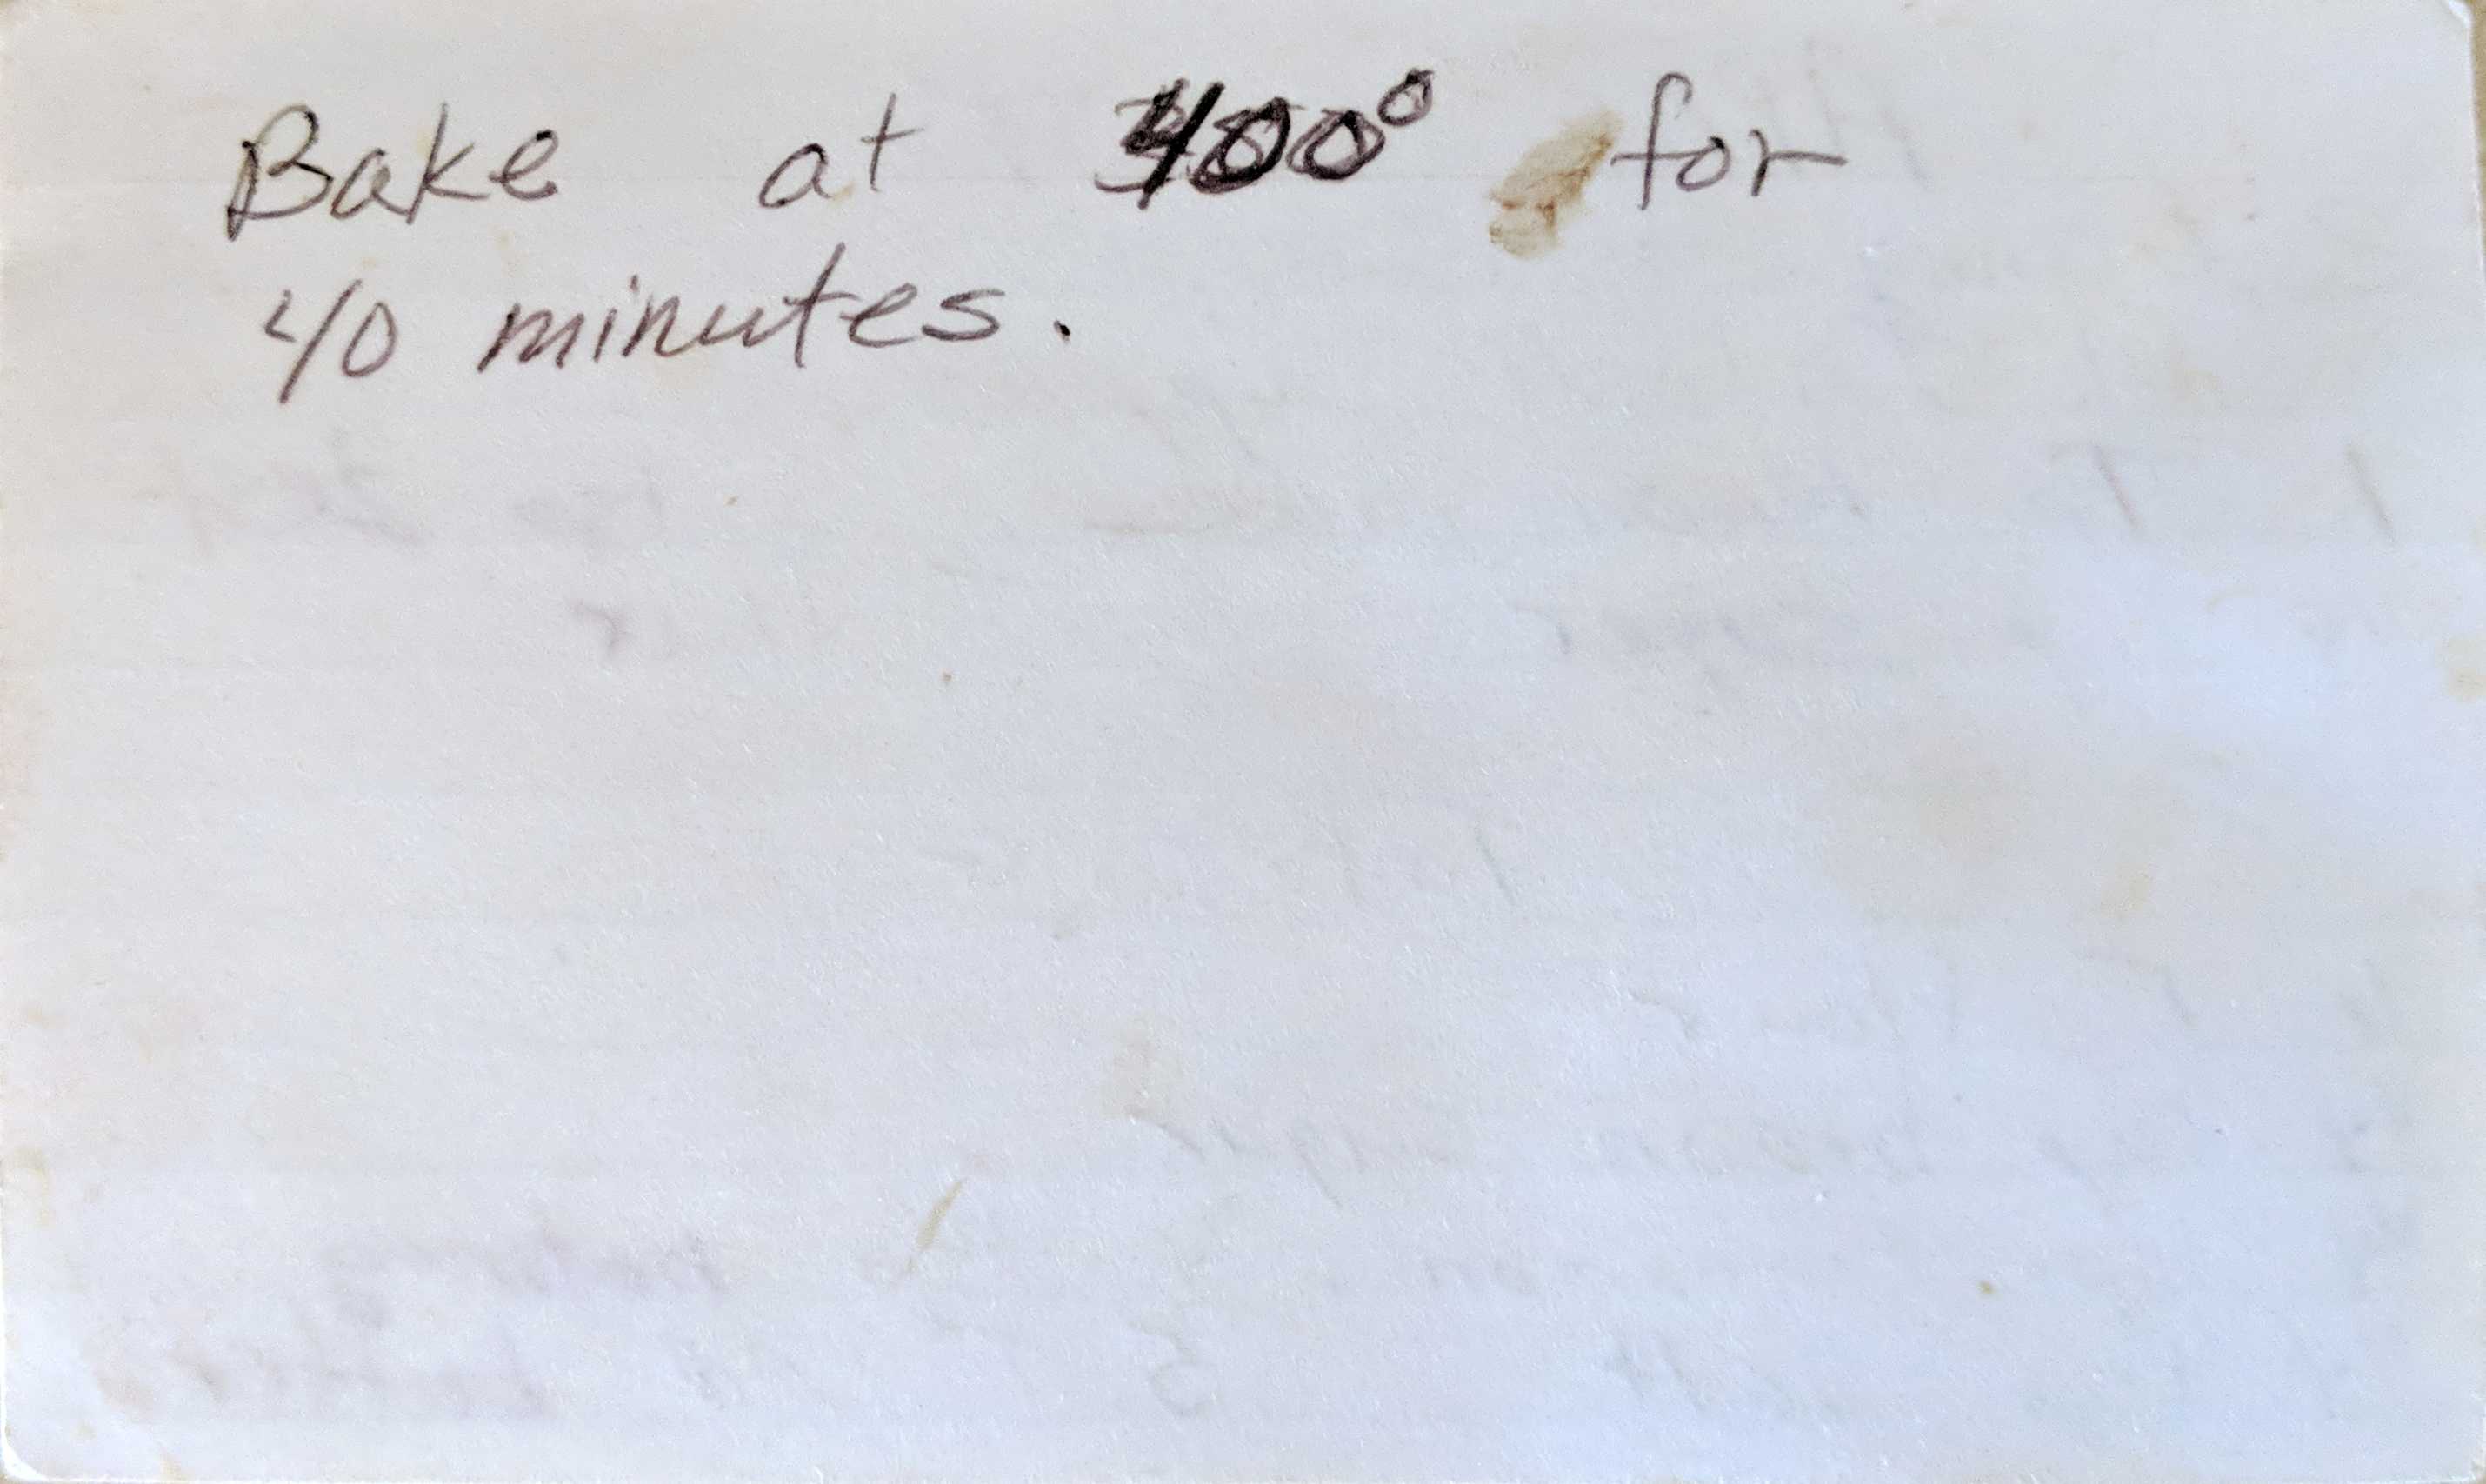 Bake at 400° for
40 minutes.